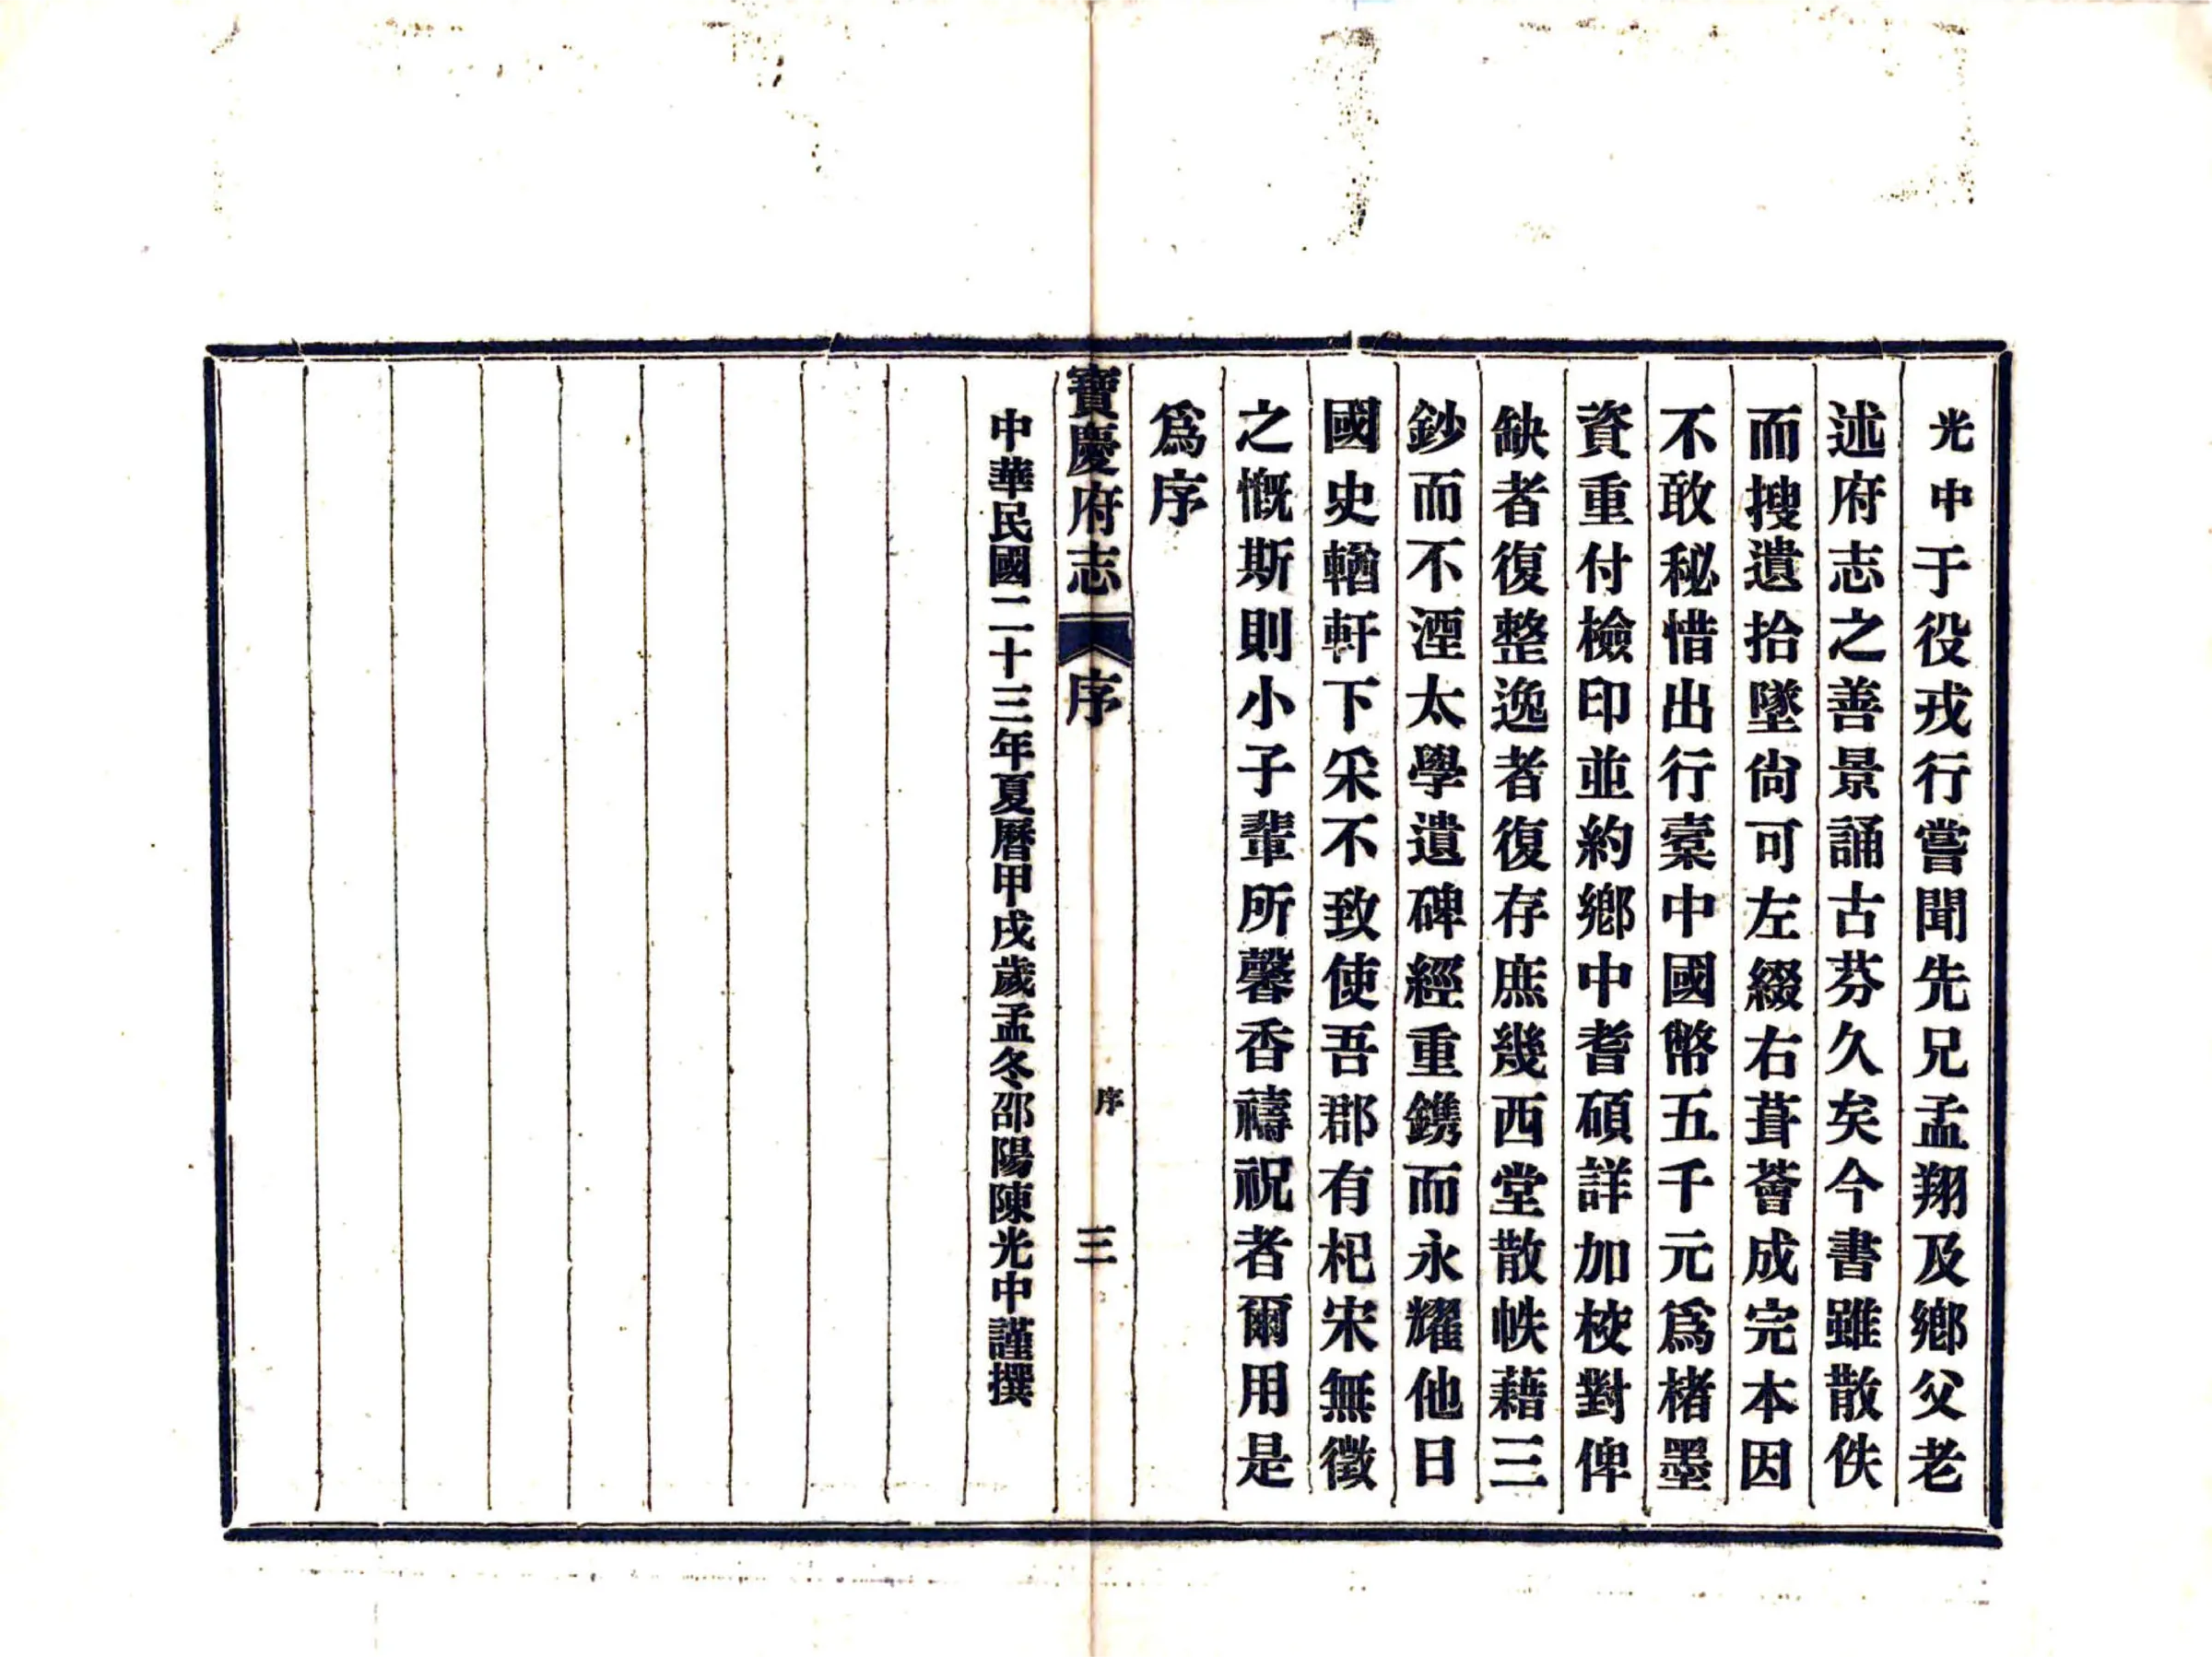 光中于役戎行嘗聞先兄孟翔及鄉父老
述府志之善景誦古芬久矣今書雖散佚
而搜遺拾墜尙可左綴右葺薈成完本因
不敢秘惜出行橐中國幣五千元爲楮墨
資重付檢印並約鄉中耆碩詳加校對俾
缺者復整逸者復存庶幾西堂散帙藉三
鈔而不湮太學遺碑經重鐫而永耀他日
國史輶軒下采不致使吾郡有杞宋無徵
之慨斯則小子輩所馨香禱祝者爾用是
爲序
寶慶府志 序
序
三
中華民國二十三年夏曆甲戌歲孟冬邵陽陳光中謹撰